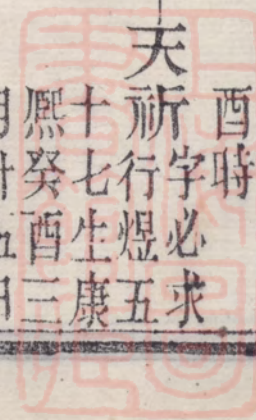 酉時
天祈字必求
行煜五
十七生康
熙癸酉三